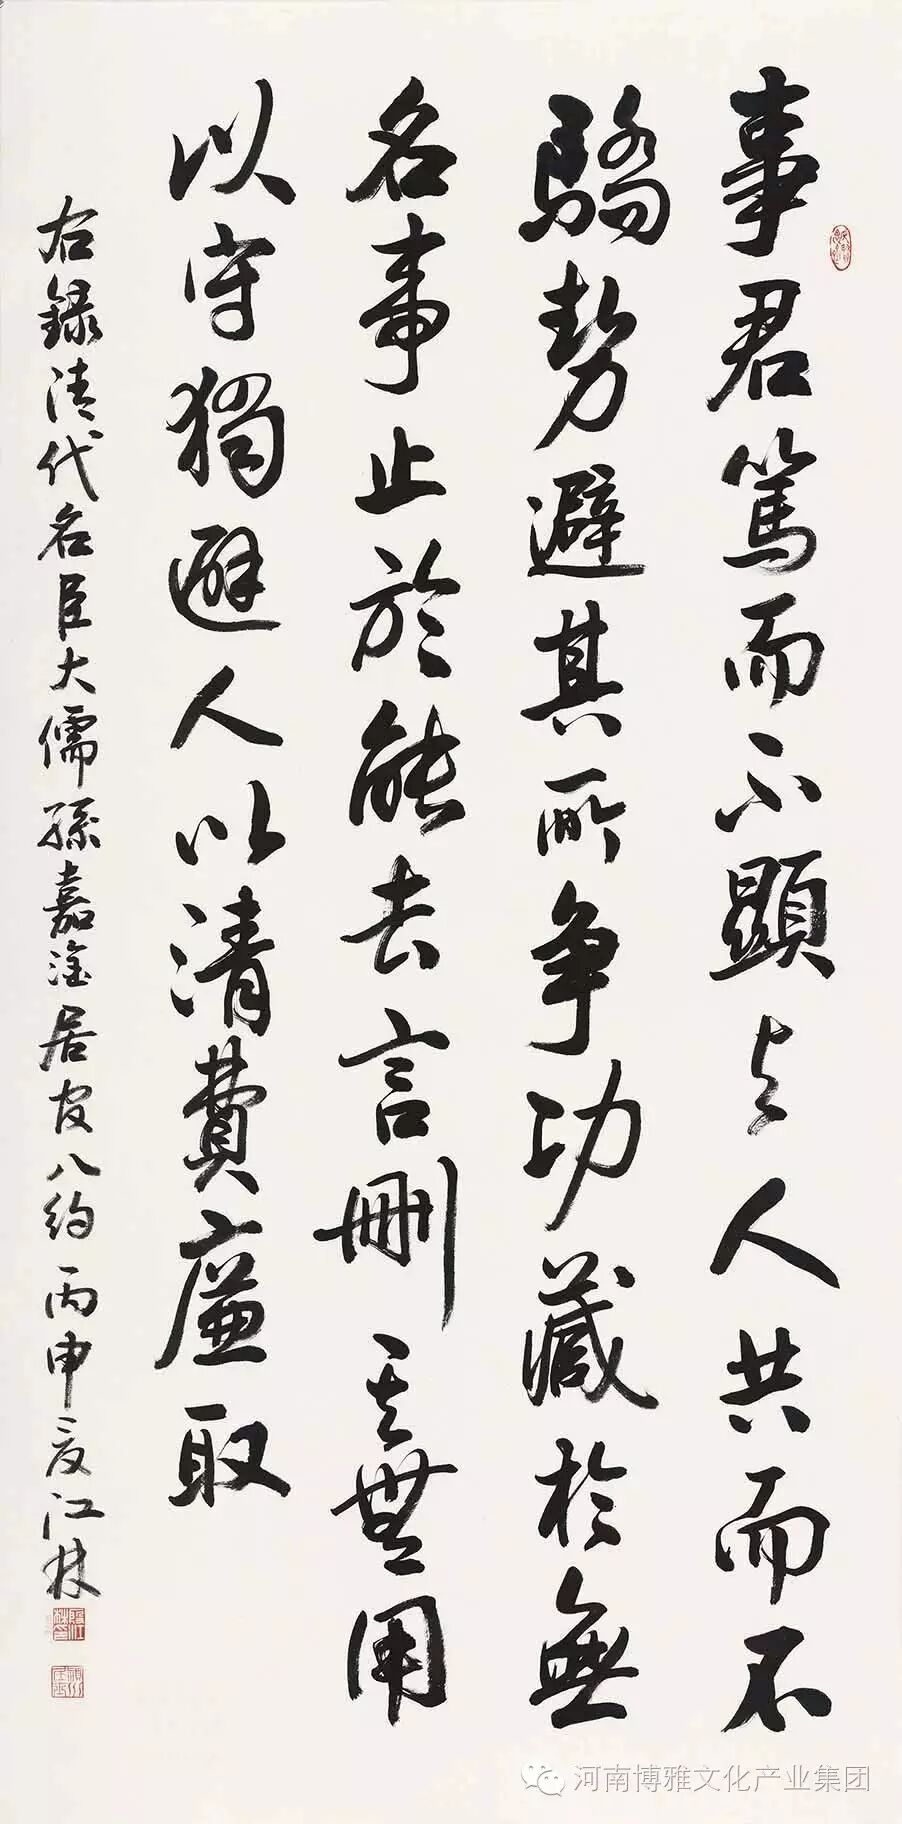 事君篤而不顯与人共而不
驕勢避其所争功藏於無
名事止於能去言刪其無用
以守獨避人以清費廉取
右錄清代名臣大儒孫嘉淦居官八約丙申夏江林
河南博雅文化产业集团